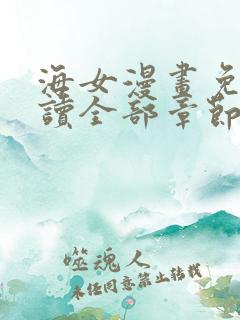 海女漫畫免
讀全部章節
噬魂人
未经同意禁止转载